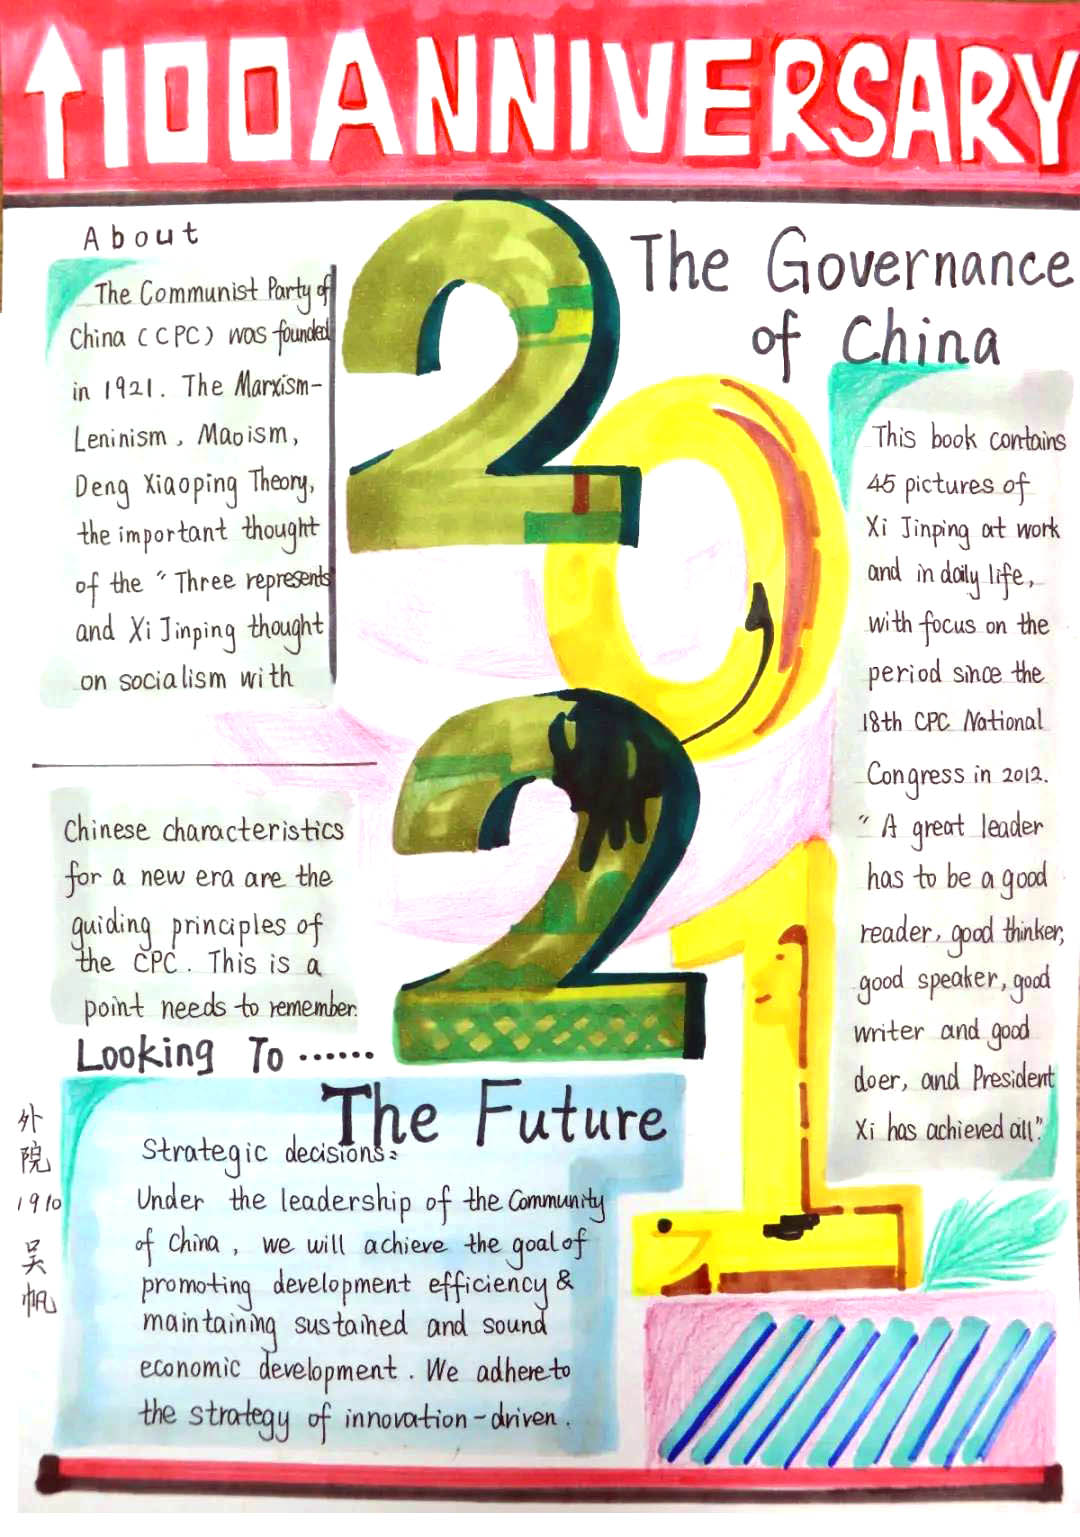 100 ANNIVERSARY
About
The Communist Party of
China (CPC) was founded
in 1921. The Marxism-
Leninism, Maoism,
Deng Xiaoping Theory,
the important thought
of the "Three represents
and Xi Jinping thought
on socialism with
Chinese characteristics
for a new era are the
guiding principles of
the CPC. This is a
point needs to remember.
2021
The Governance
of China
This book contains
45 pictures of
Xi Jinping at work
and in daily life,
with focus on the
period since the
18th CPC National
Congress in 2012.
"A great leader
has to be a good
reader, good thinker,
good speaker, good
writer and good
doer, and President
Xi has achieved all".
Looking To ······
The Future
Strategic decisions:
Under the leadership of the Community
of China, we will achieve the goal of
promoting development efficiency &
maintaining sustained and sound
economic development. We adhere to
the strategy of innovation-driven.
外
院
1910
吴
帆